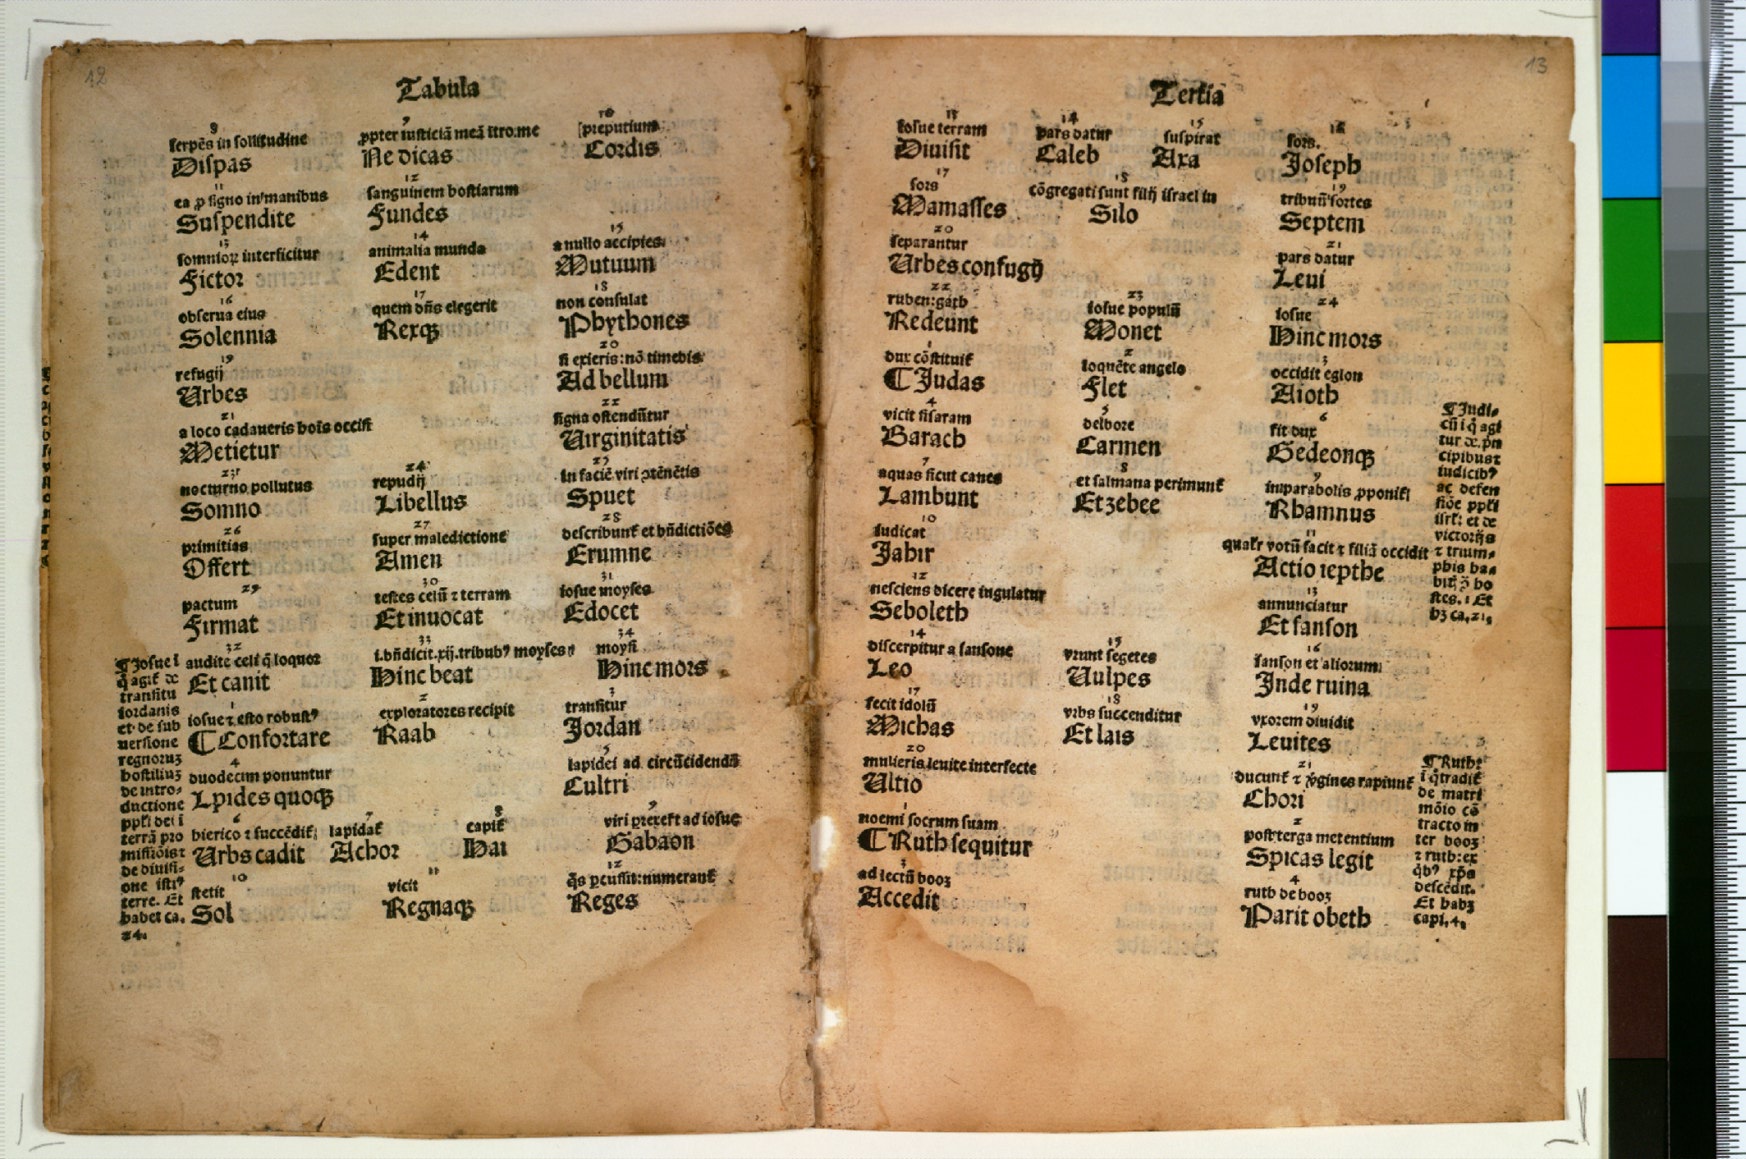 12
Tabula
8 9 10
serpēs in sollitudine ꝓpter iusticiā meā ītro:me [preputium
Dispas Ne dicas Cordis
11 12
ea ꝓ signo in manibus sanguinem hostiarum
Suspendite Fundes
13 14 15
somnioꝝ interficitur animalia munda a nullo accipies
Fictor Edent Mutuum
16 17 18
obserua eius quem dn̄s elegerit non consulat
Solennia Rexqꝫ Phythones
19 20
refugij si exieris:nō timebis
Urbes Ad bellum
21 22
a loco cadaueris hoīs occisi signa ostendūtur
Metietur Uirginitatis
23 24 25
nocturno pollutus repudij In faciē viri ꝯtēnētis
Somno Libellus Spuet
26 27 28
primitias super maledictione describunt et bn̄dictiōes
Offert Amen Erumne
29 30 31
pactum testes celū ⁊ terram iosue moyses
Firmat Et inuocat Edocet
32 33 34
audite celi q̄ loquor i.bn̄dicit.xij.tribubꝰ moyses moysi
Et canit Hinc beat Hinc mors
1 2 3
iosue ⁊ esto robustꝰ exploratores recipit transitur
¶ Confortare Raab Jordan
4 5
duodecim ponuntur lapidei ad circūcidendū
Lpides quoqꝫ Cultri
6 7 8 9
hierico ⁊ succēdit lapidat capit viri ꝓtext ad iosue
Urbs cadit Achor Hai Gabaon
10 11 12
stetit vicit q̄s ꝑcussit:numerant
Sol Regnaqꝫ Reges
¶ Josue ī
q̄ agit̄ de
transitu
iordanis
et de sub
uersione
regnoruꝫ
hostiliuꝫ
de intro-
ductione
ppl̄i dei ī
terrā pro
missiōis ⁊
de diuisi-
one istiꝰ
terre. Et
habet ca.
24.
13
Tertia
13 14 15 16
Iosue terram pars datur suspirat sors.
Diuisit Caleb Axa Joseph
17 18 19
sors cōgregati sunt filij israel in tribuū sortes
Mamasses Silo Septem
20 21
separantur pars datur
Urbes confugij Leui
22 23 24
ruben:gath iosue populū Iosue
Redeunt Monet Hinc mors
1 2 3
dux cōstituit loquēte angelo occidit eglon
¶ Judas Flet Aioth
4 5 6
vicit sisaram delbore fit dux
Barach Carmen Gedeonqꝫ
7 8 9
aquas sicut canes et salmana perimunt in parabolis ꝓponit
Lambunt Et zebee Rhamnus
10 11
Iudicat qualr̄ votū facit ⁊ filiā occidit
Jahir Actio iepthe
12 13
nesciens dicere iugulatur annunciatur
Seboleth Et sanson
14 15 16
discerpitur a sansone vrunt segetes sanson et aliorum
Leo Uulpes Inde ruina
17 18 19
fecit idolū vrbs succenditur vxorem diuidit
Michas Et lais Leuites
20 21
mulieris leuite interfecte ducunt ⁊ v̄gines rapiunt
Ultio Chori
1 2
noemi socrum suam post terga metentium
¶ Ruth sequitur Spicas legit
3 4
ad lectū booz ruth de booz
Accedit Parit obeth
¶ Judi-
cū ī q̄ agi
tur de pn̄
cipibus ⁊
iudicibꝰ
ac defen
siōe ppl̄i
isrl̄: et de
victorijs
⁊ trium-
phis ha-
stes. Et
hꝫ ca.21.
¶ Ruth:
ī q̄ tradit̄
de matri
mōio cō
tracto in
ter booz
⁊ ruth:ex
qbꝰ xp̄s
descēdit.
Et habꝫ
capi.4.